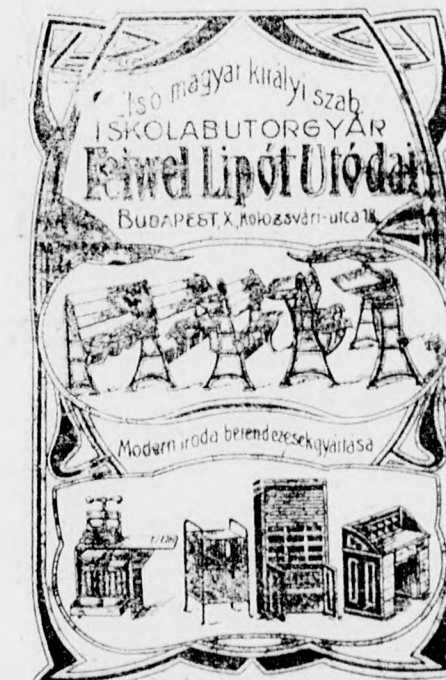 Első magyar királyi szab.
ISKOLABUTORGYÁR
Feiwel Lipót Utódai
BUDAPEST, X., Kolozsvári-utca 13.
Modern iroda berendezések gyártása